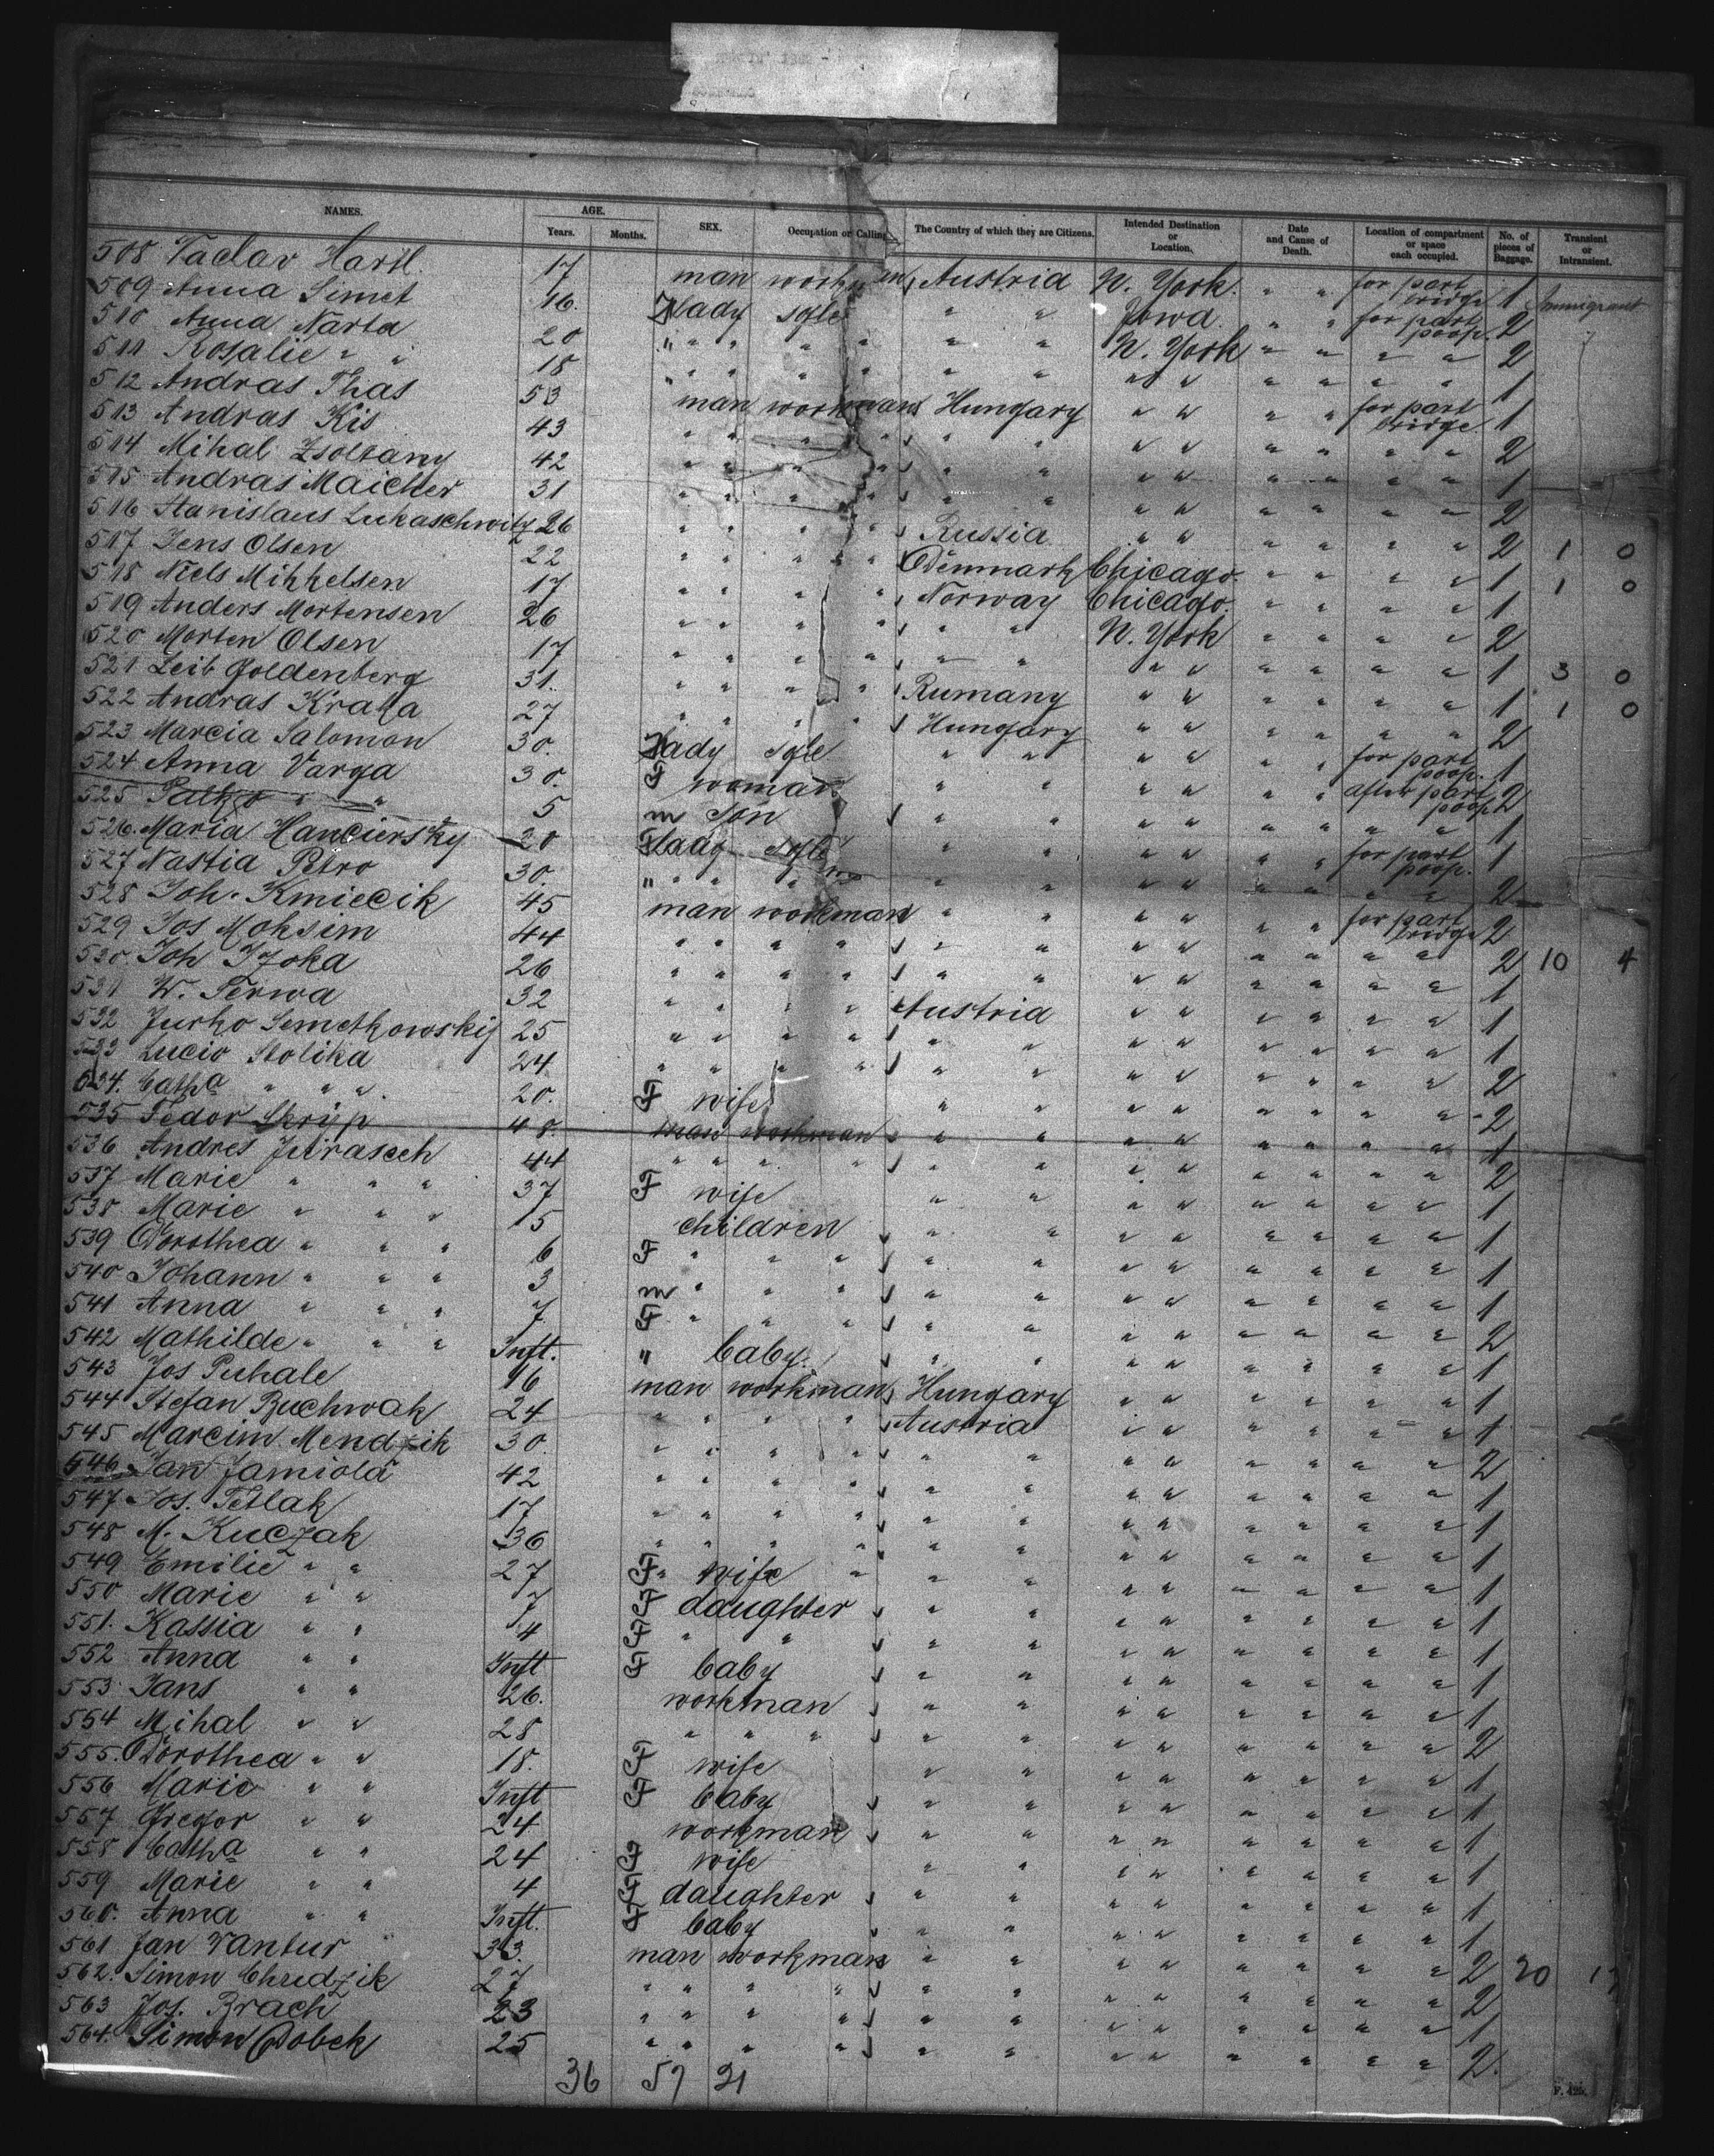 NAMES. AGE. Years. Months. SEX. Occupation or Calling The Country of which they are Citizens. Intended Destination or Location. Date and Cause of Death. Location of compartment or space each occupied. No. of pieces of Baggage. Transient or Intransient.
508 Vaclav Hartl. 17 man workman Austria N. York. " " for part bridge 1 Immigrant
509 Anna Simet 16. lady sgle " " Iowa. " " for part poop. 2
510 Anna Narta 20 " " " " " " " N. York " " " " 2
511 Rosalie " " 18 " " " " " " " " " " " " " 1
512 Andras Thas 53 man workman Hungary " " " " for part bridge. 1
513 Andras Kis 43 " " " " " " " " " " " " 2
514 Mihal Zsoltany 42 " " " " " " " " " " " " 1
515 Andras Maicher 31 " " " " " " " " " " " " 2
516 Stanislaus Lukaschwitz 26 " " " " Russia " " " " " " 2 1 0
517 Jens Olsen 22 " " " " Denmark Chicago. " " " " 1 1 0
518 Niels Mikkelsen 17 " " " " Norway Chicago. " " " " 1
519 Anders Mortensen 26 " " " " " " N. York " " " " 2
520 Morten Olsen 17 " " " " " " " " " " " " 1 3 0
521 Leib Goldenberg 31. " " " " Rumany " " " " " " 1 1 0
522 Andras Krala 27 " " " " Hungary " " " " " " 2
523 Marcia Salomon 30. lady sgle " " " " " " for part poop. 1
524 Anna Varga 30. F woman " " " " " " after part poop 2
525 Palko " " 5 m son " " " " " " 1
526. Maria Hanciersky 20 F lady sgle " " " " " " for part poop. 1
527 Nastia Petro 30. " " " " " " " " " " " " 2
528 Joh. Kmiecik 45 man workman " " " " " " for part bridge 2
529 Jos Moksim 44 " " " " " " " " " " " " 2 10 4
530. Joh Izoka 26 " " " " " " " " " " " " 1
531 W. Serwa 32 " " " " Austria " " " " " " 1
532 Jurko Semetkowskij 25 " " " " " " " " " " " " 1
533 Lucio Stolika 24 " " " " " " " " " " " " 2
534. Catha " " " 20. F wife " " " " " " " " 2
535 Fedor Skrip 48. man workman " " " " " " " " 1
536 Andres Jurasech 44 " " " " " " " " " " " " 2
537 Marie " " " 37 F wife " " " " " " " " 1
538 Marie " " " 15 children " " " " " " " " 1
539 Dorothea " " " 6 F " " " " " " " " " " " 1
540 Johann " " " 3 m " " " " " " " " " " " 1
541 Anna " " " 7 F " " " " " " " " " " " 2
542 Mathilde " " " Inft. " baby. " " " " " " " " 1
543 Jos Puhale 16 man workman Hungary " " " " " " 1
544 Stefan Buchwak 24 " " " " Austria " " " " " " 1
545 Marcim Mendzik 30. " " " " " " " " " " " " 2
546 Jan Jamiola 42 " " " " " " " " " " " " 1
547 Jos. Tetlak 17 " " " " " " " " " " " " 1
548 M. Kuczak 36 " " " " " " " " " " " " 1
549 Emilie " " 27 F " wife " " " " " " " " " 1
550 Marie " " 7 F daughter " " " " " " " " 1
551. Kassia " " 4 F " " " " " " " " " " 1
552 Anna " " Inft F baby " " " " " " " " 1
553 Jans " " 26. workman " " " " " " " " 1
554 Mihal " " 28 " " " " " " " " " " " 2
555. Dorothea " " 18. F wife " " " " " " " " 1
556 Marie " " Inft F baby " " " " " " " " 1
557 Gregor " " 24 workman " " " " " " " " 1
558 Catha " " 24 F wife " " " " " " " " 1
559 Marie " " 4 F daughter " " " " " " " " 1
560. Anna " " Inft. F baby " " " " " " " " 1
561 Jan Vantur 33. man workman " " " " " " " " 2 20
562. Simon Chudzik 27 " " " " " " " " " " " " 2
563 Jos. Brach 23 " " " " " " " " " " " " 1
564. Simon Dobek 25 " " " " " " " " " " " " 2.
36 57 21